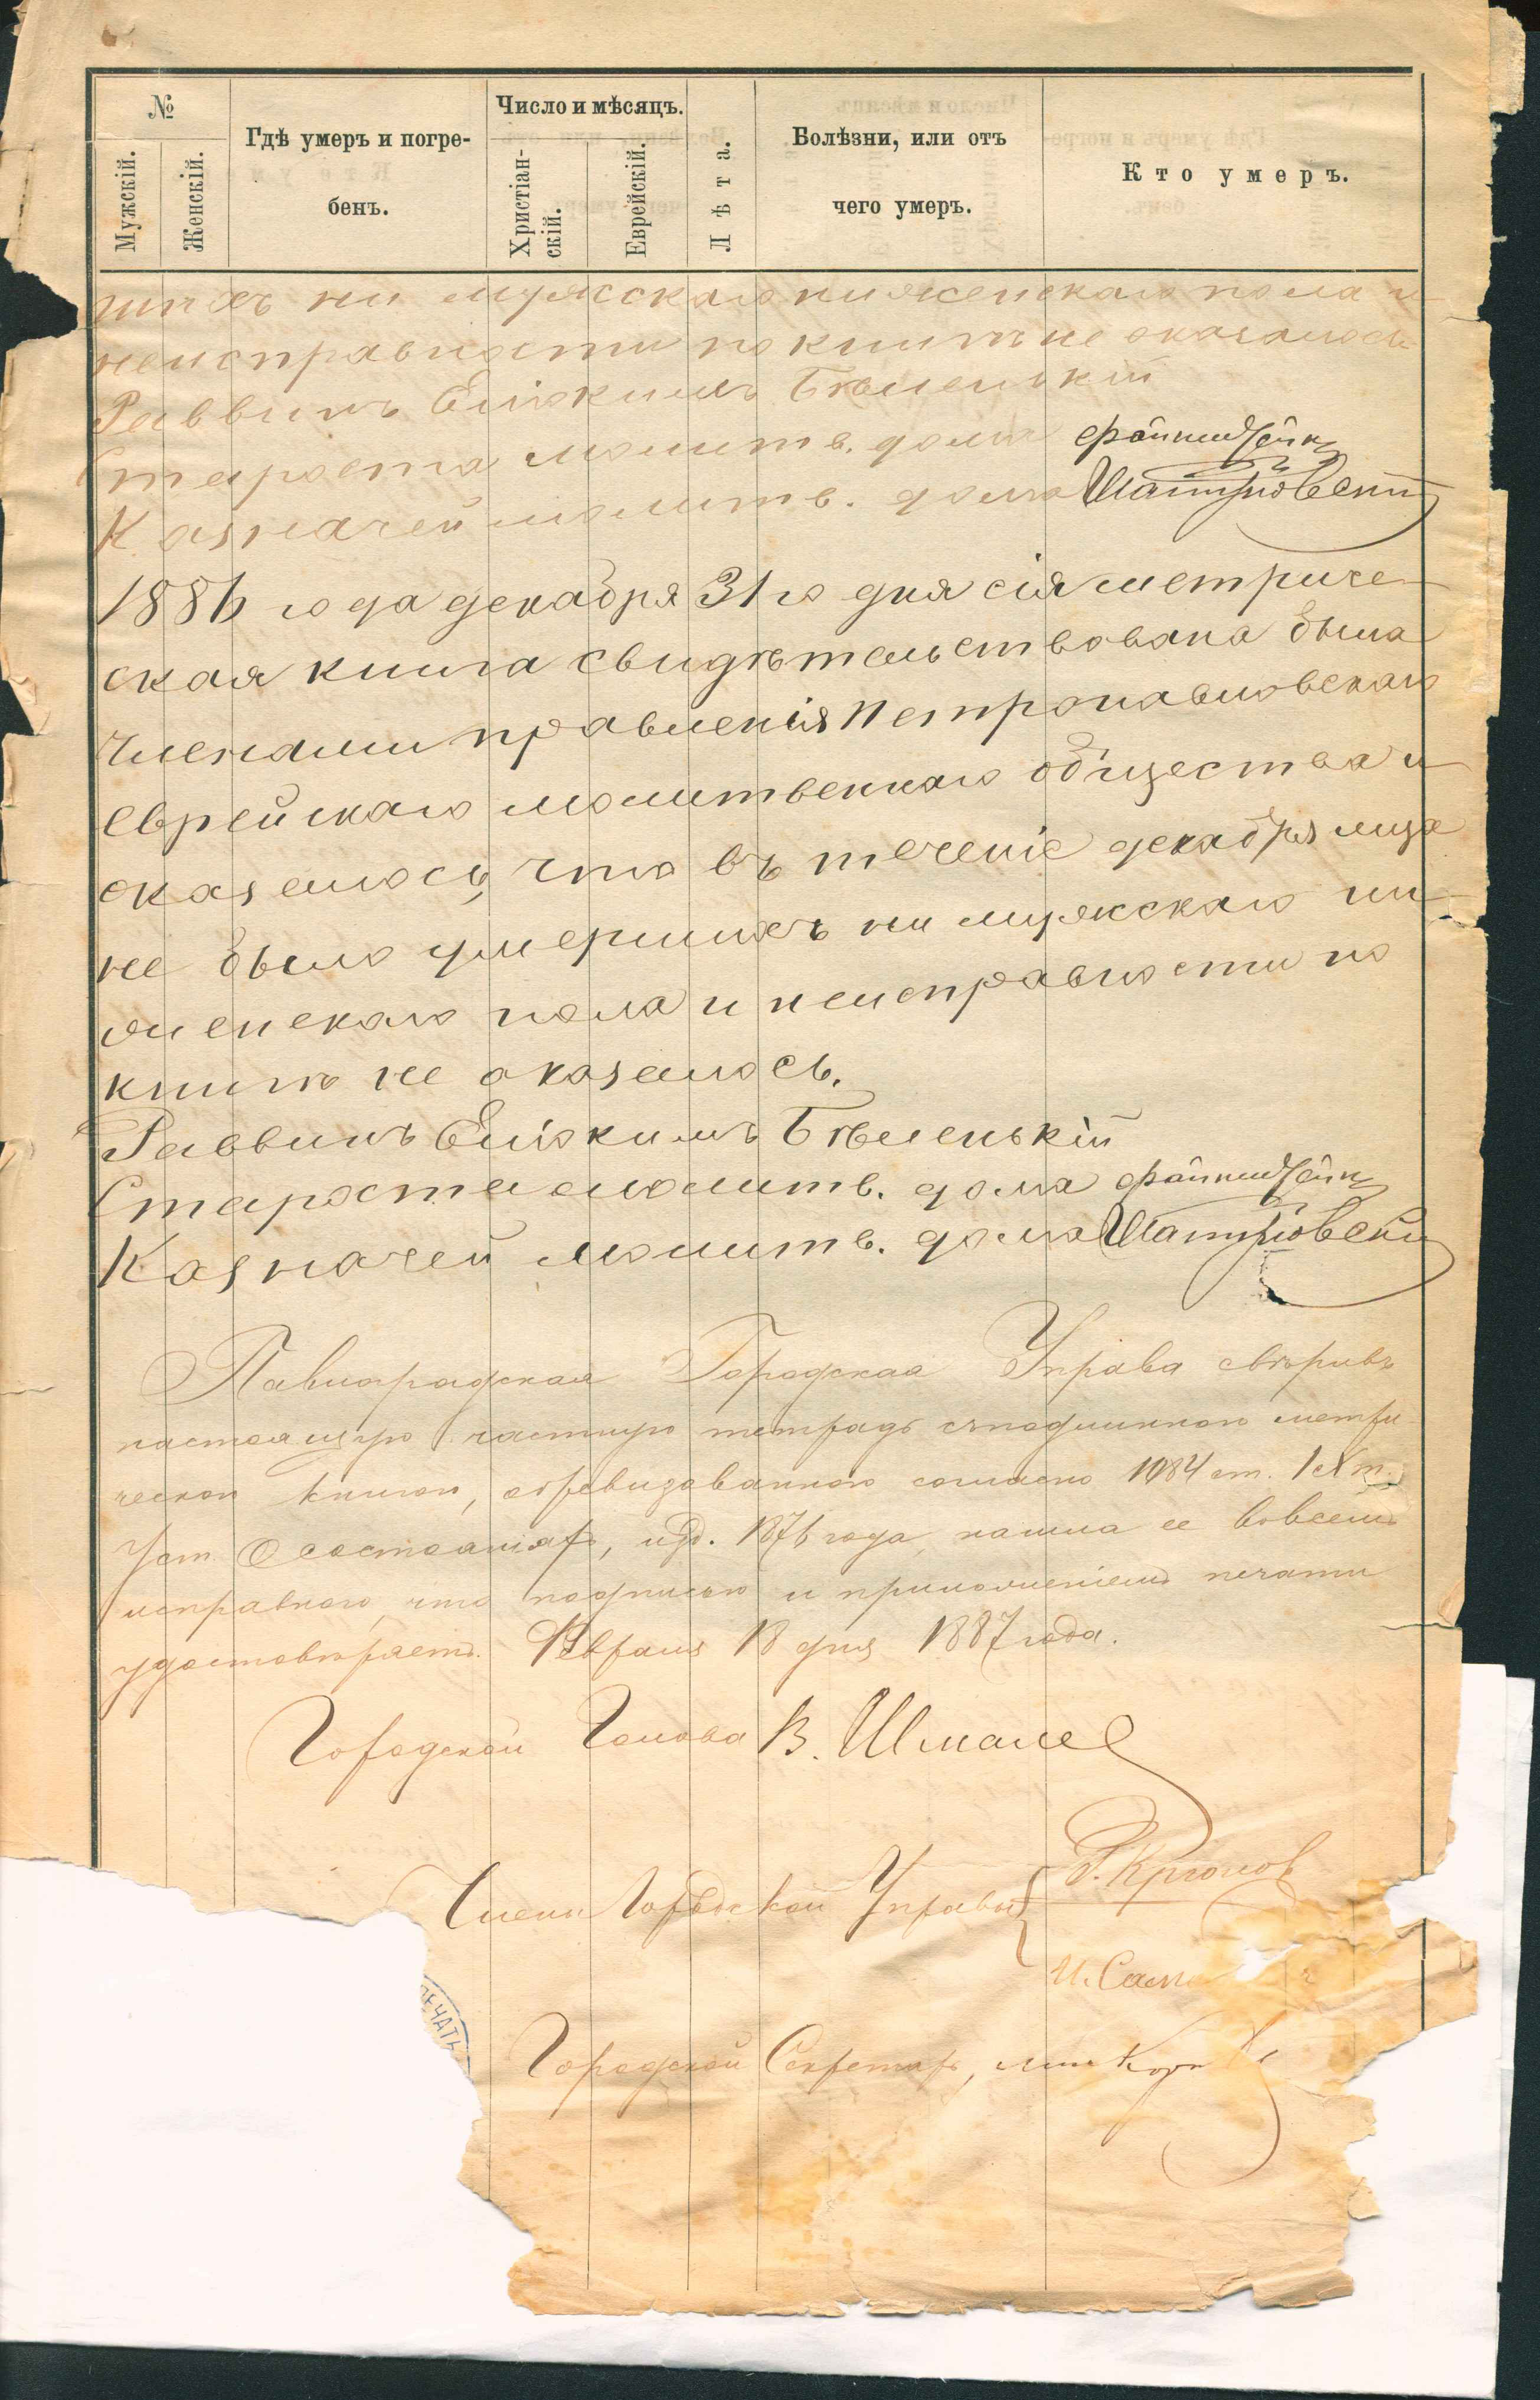 №
Мужскій.
Женскій.
Гдѣ умеръ и погре-
бенъ.
Число и мѣсяцъ.
Христіан-
скій.
Еврейскій.
Лѣта.
Болѣзни, или отъ
чего умеръ.
Кто умеръ.
шихъ ни мужскаго ни женскаго пола и
неисправности по книгѣ не оказалось
Раввинъ Еліокимъ Бѣленькій
Староста молитв. дома
Казначей молитв. дома Шатуновскій
1886 года декабря 31го дня сія метриче-
ская книга свидѣтельствована была
членами правленія Петропавловскаго
еврейскаго молитвеннаго общества и
оказалось, что въ теченіе декабря мца
не было умершихъ ни мужскаго ни
женскаго пола и неисправности по
книгѣ не оказалось.
Раввинъ Еліокимъ Бѣленькій
Староста молитв. дома
Казначей молитв. дома Шатуновскій
Павлоградская Городская Управа свѣривъ
настоящую частную тетрадь съ подлинною метри
ческою книгою, обревизованною согласно 1084 ст. IX т.
Уст. О состояніяхъ, изд. 1876 года, нашла ее вовсемъ
исправною, что подписью и приложеніемъ печати
удостовѣряетъ. Февраля 18 дня 1887 года.
Городской Голова В. Шмалев
Члены Городской Управы
И. Сам
ПЕЧАТЬ
Городской Секретарь,